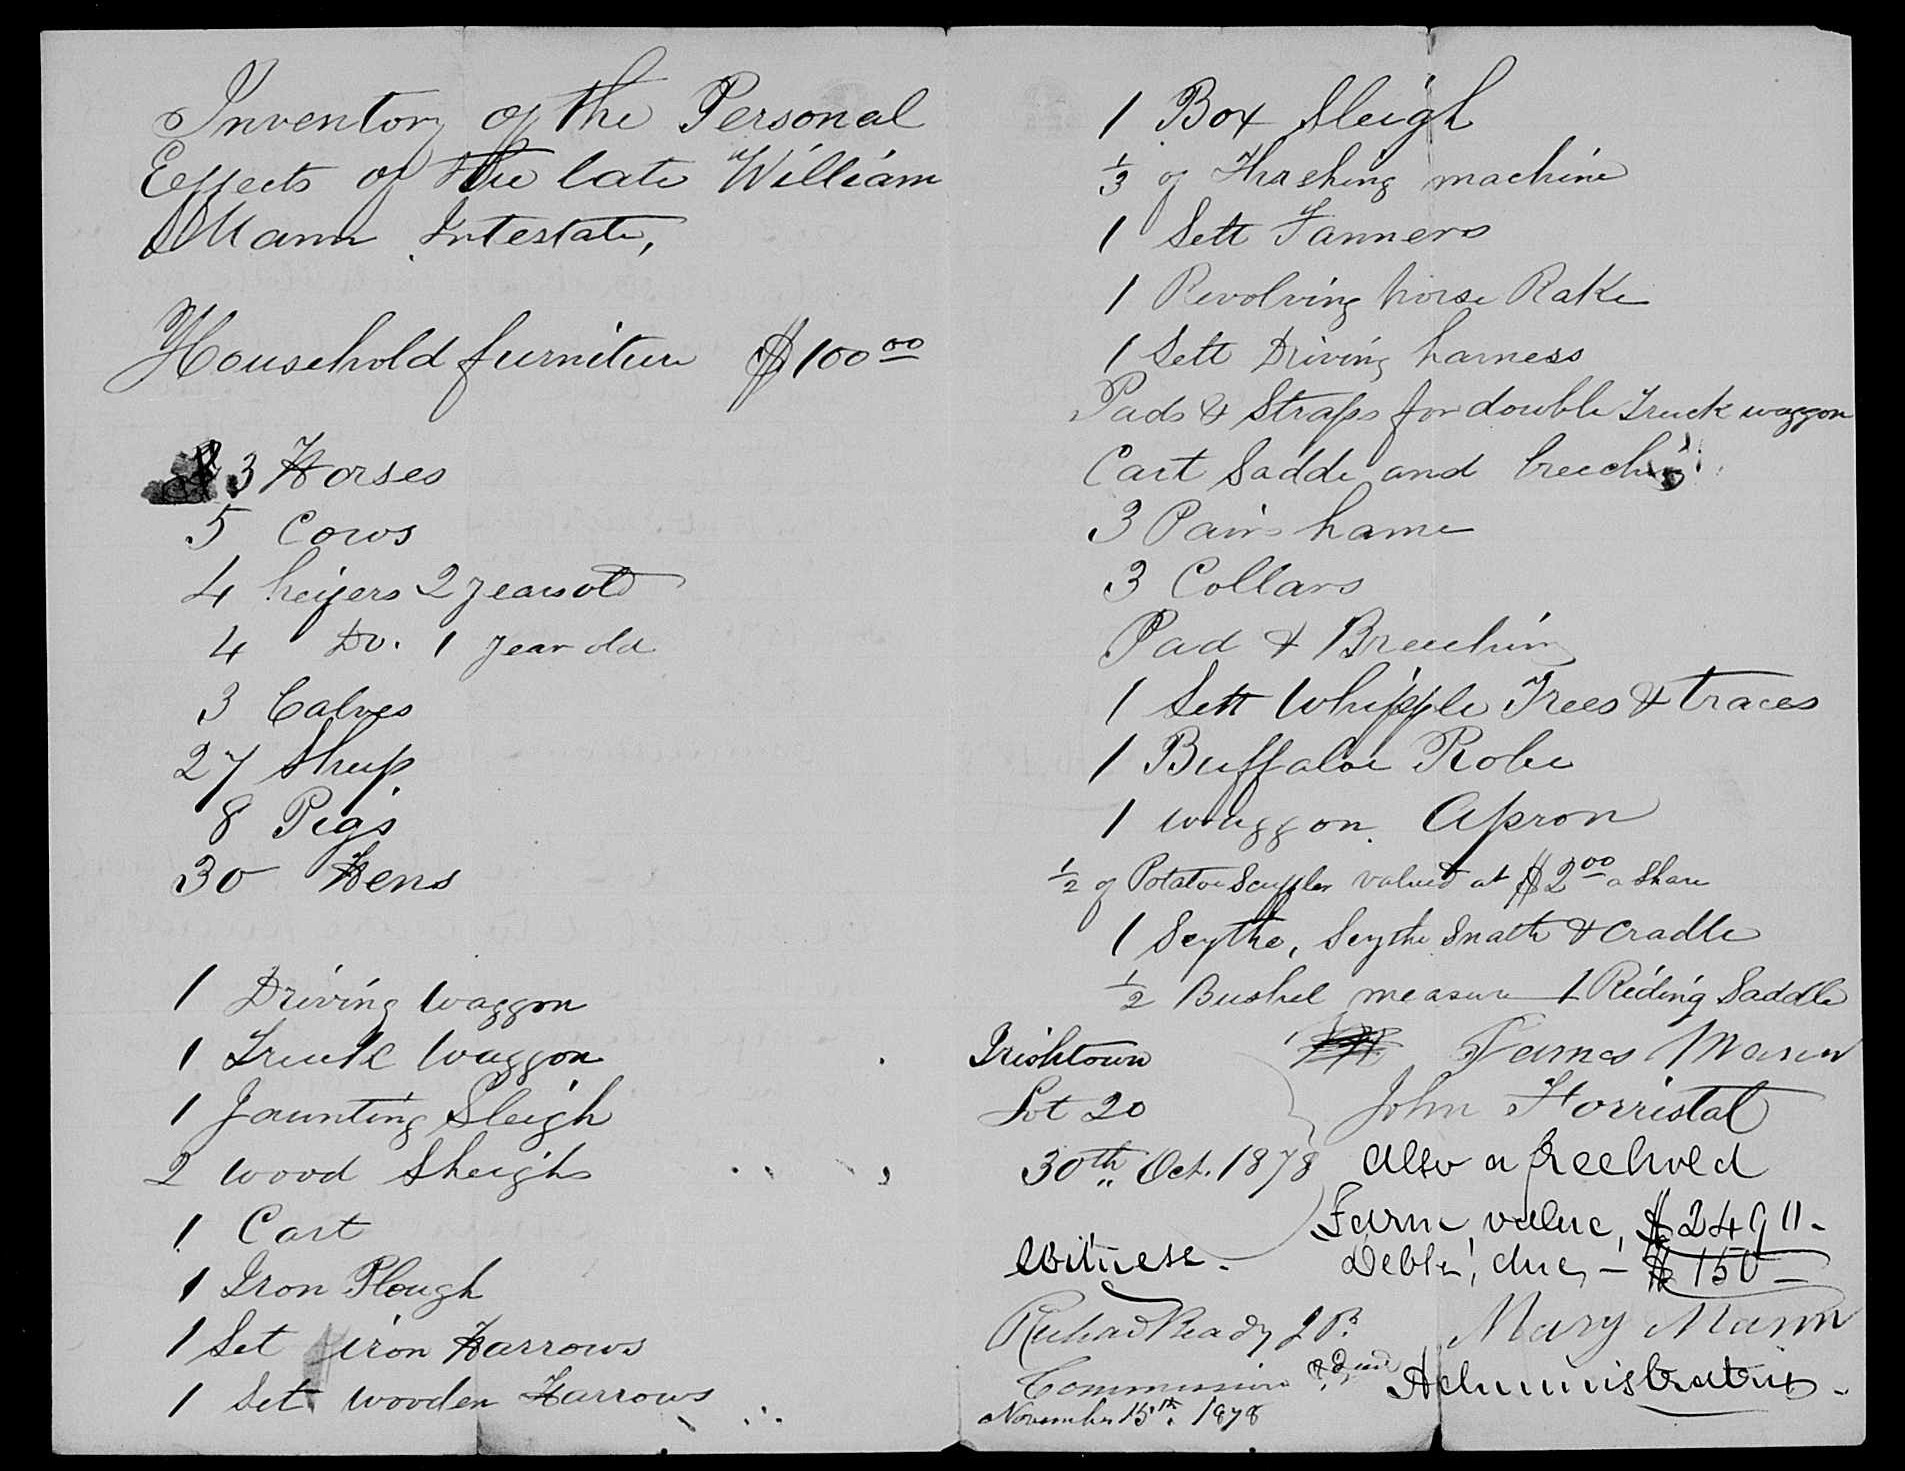 Inventory of the Personal
Effects of the late William
Mann Intestate,
Household furniture $100 00
3 Horses
5 Cows
4 heifers 2 years old
4 Do. 1 year old
3 Calves
27 Sheep
8 Pigs
30 Hens
1 Driving Waggon
1 Truck Waggon
1 Jaunting Sleigh
2 wood Sleighs
1 Cart
1 Iron Plough
1 Set iron Harrows
1 Set wooden Harrows
1 Box Sleigh
1/3 of Thrashing machine
1 Sett Fanners
1 Revolving horse Rake
1 Sett Driving harness
Pads & Straps for double Truck waggon
Cart Saddle and breeching
3 Pairs hame
3 Collars
Pad & Breeching
1 Sett Whipple Trees & traces
1 Buffaloe Robe
1 waggon Apron
1/2 of Potatoe Scuffler valued at $2 00 a Share
1 Scythe, Scythe Snath & Cradle
1/2 Bushel measure 1 Riding Saddle
Irishtown James Mann
Lot 20 John Horristal
30th Oct. 1878 Also a freehold
Farm value, $249
Witness. Debts, due, — $150 —
Richard Ready J.P. Mary Mann
Commission Administratrix.
November 15th. 1878